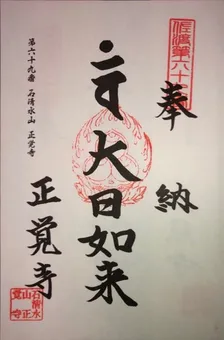 奉納
佐渡第六十
大日如来
正覚寺
第六十九番 石清水山 正覚寺
石清水
山正
覚寺